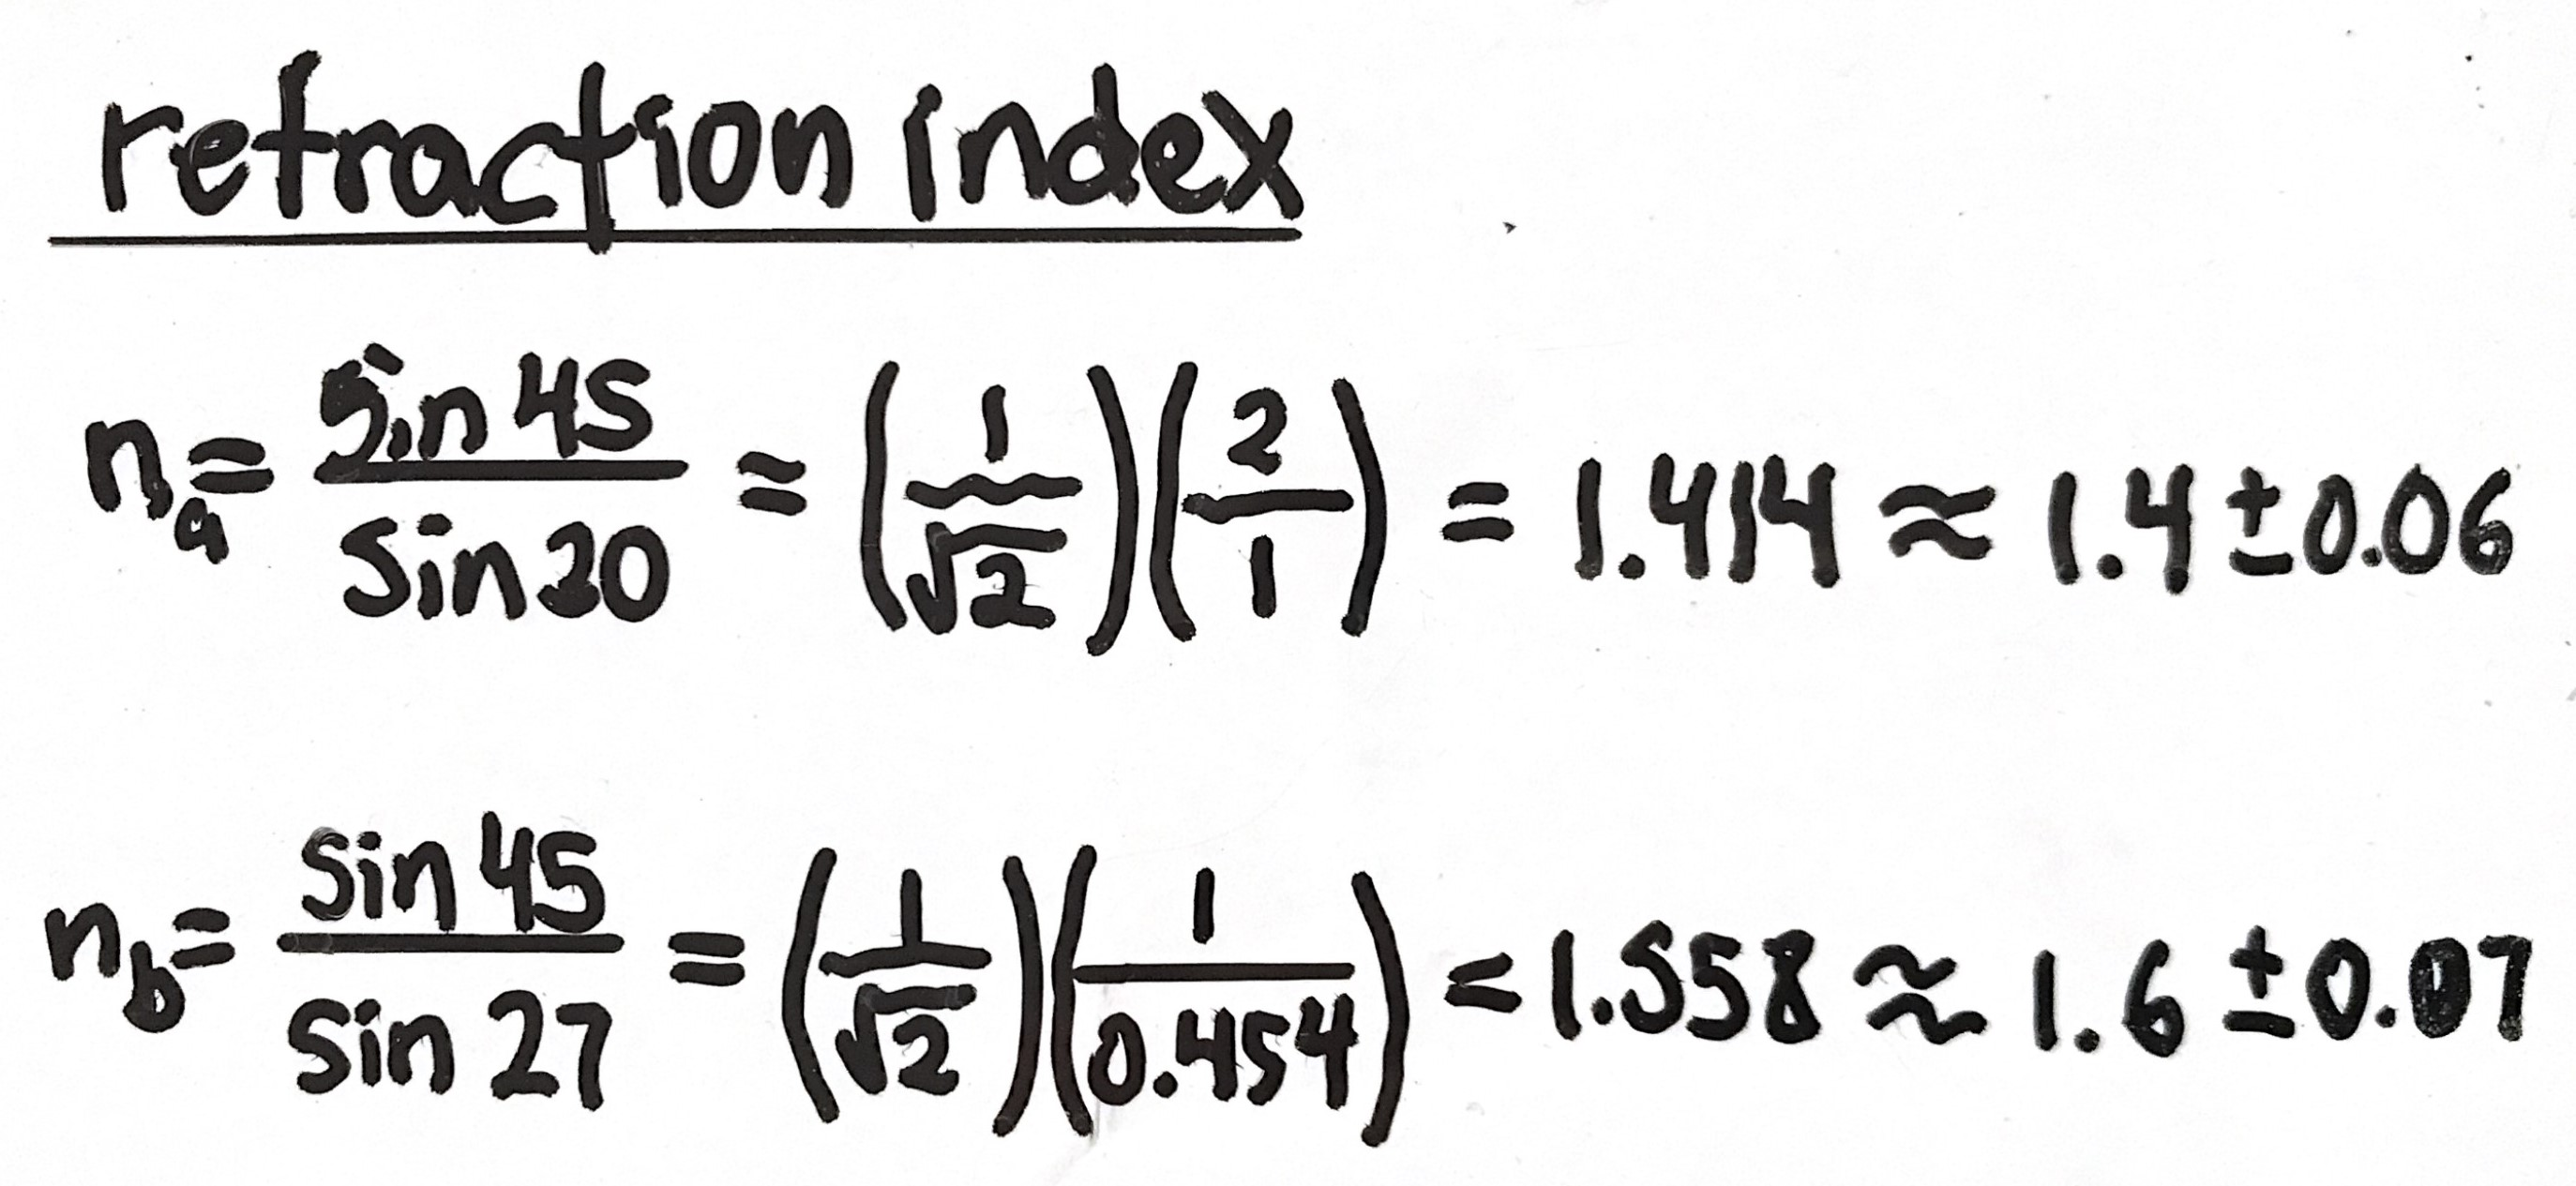 retraction index
nₐ = Sin 45 / Sin 20 = (1/√2)(2/1) = 1.414 ≈ 1.4 ± 0.06
n_b = Sin 45 / Sin 27 = (1/√2)(1/0.454) = 1.558 ≈ 1.6 ± 0.07